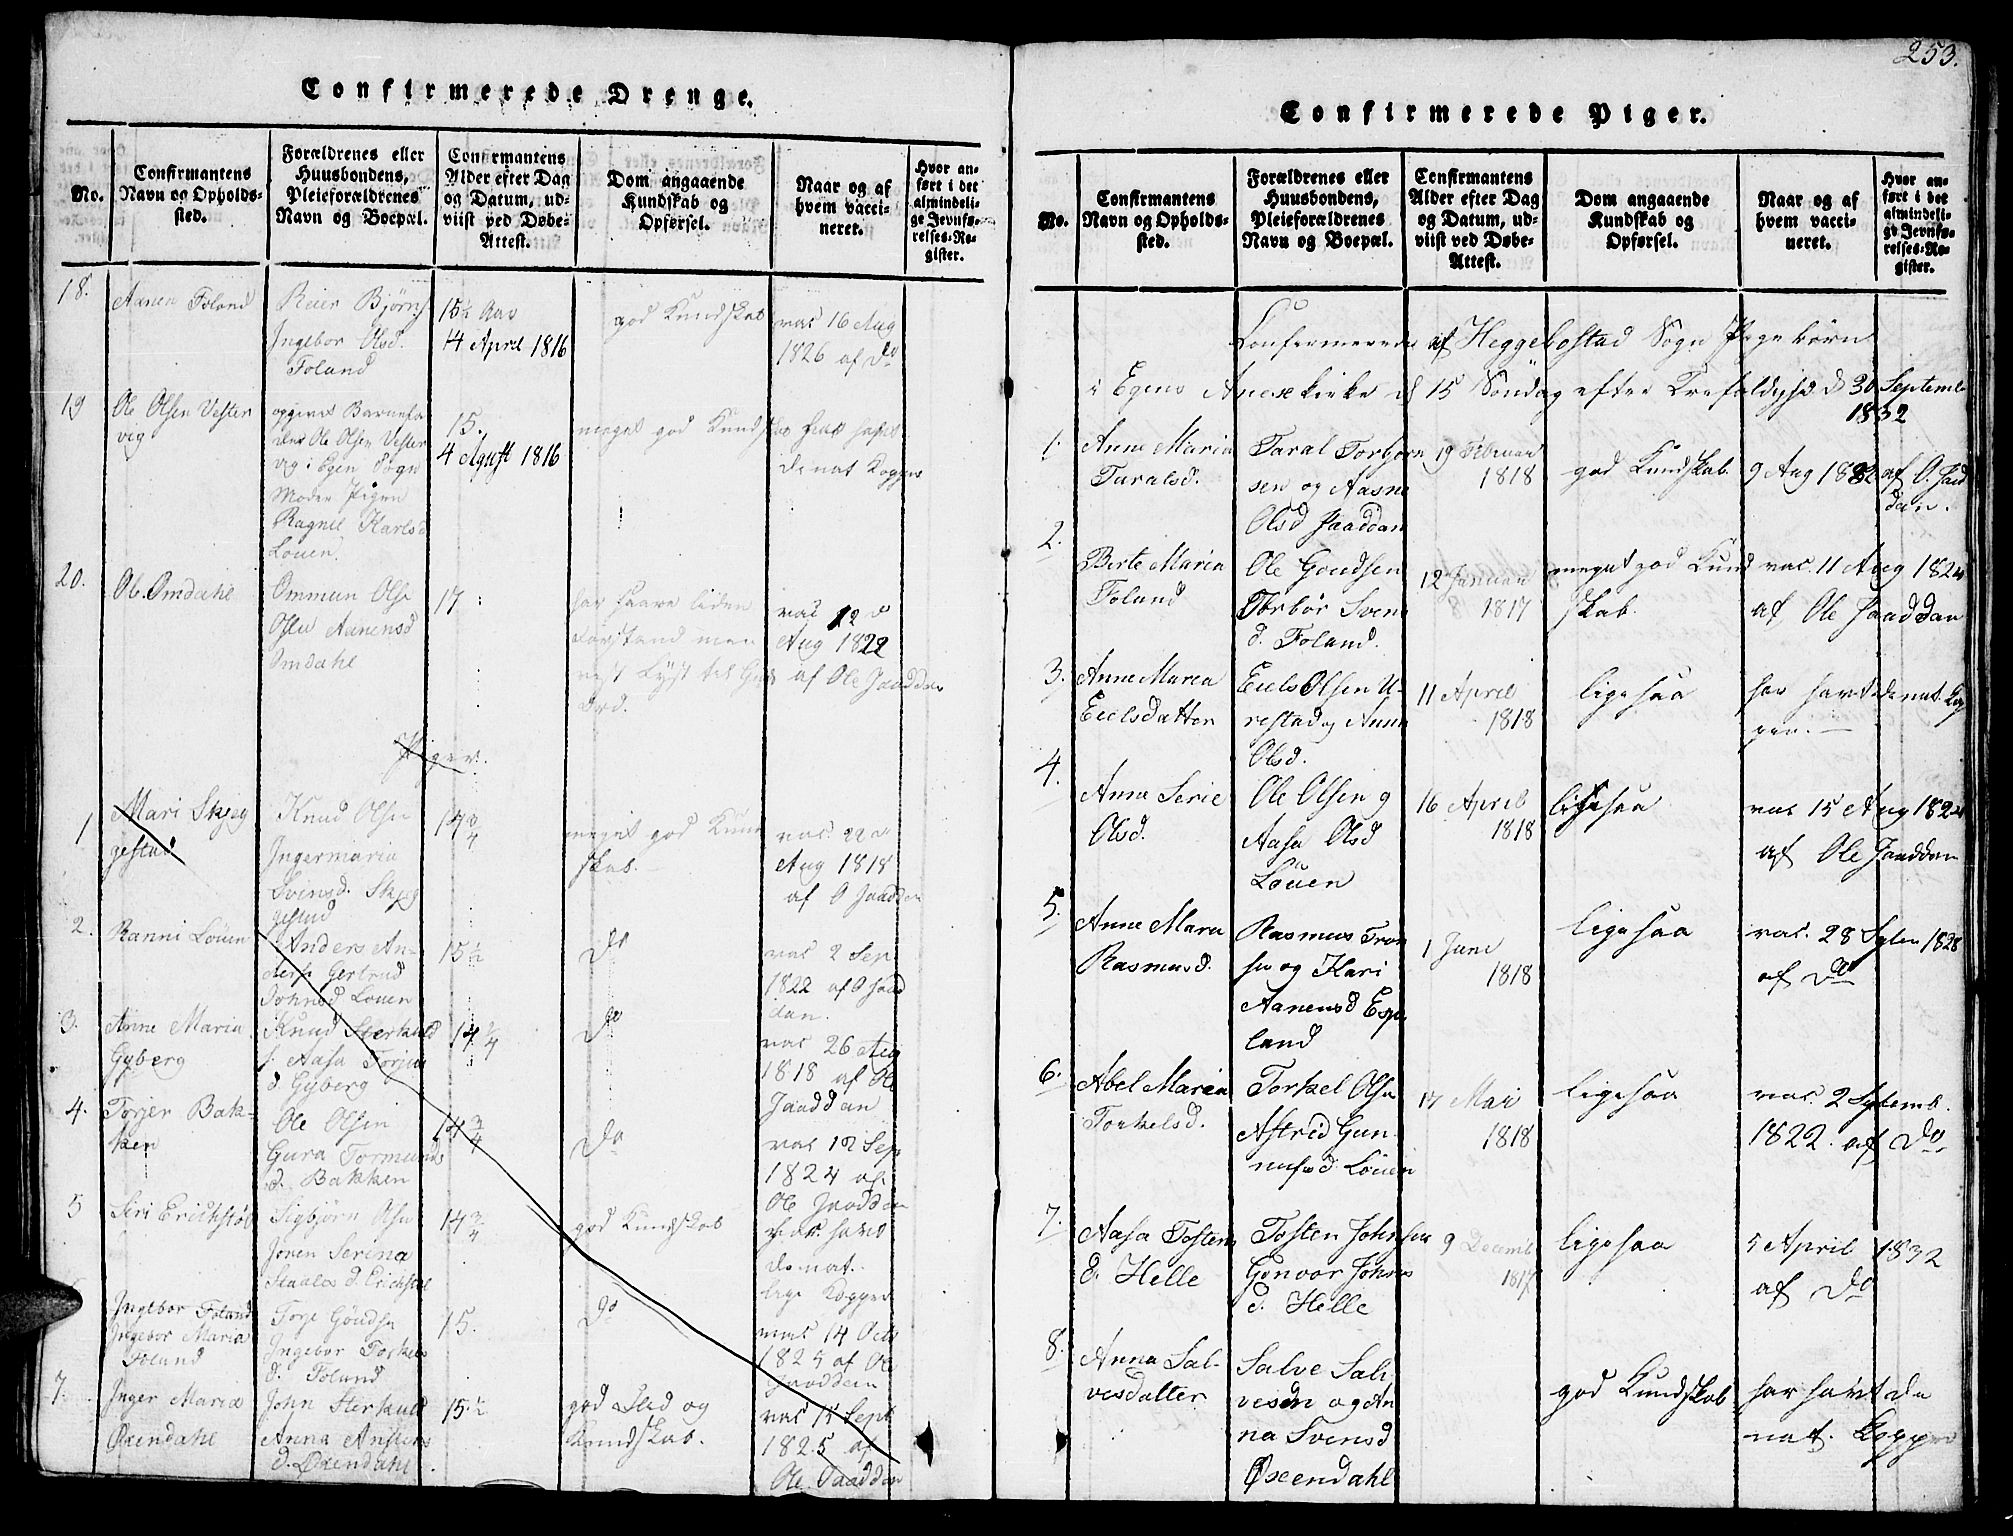 Confirmerede Drenge.
No.
Confirmantens
Navn og Opholds-
sted.
Forældrenes eller
Huusbondens,
Pleieforældrenes
Navn og Boepæl.
Confirmantens
Alder efter Dag
og Datum, ud-
viist ved Døbe-
Attest.
Dom angaaende
Kundskab og
Opførsel.
Naar og af
hvem vacci-
neret.
Hvor an-
ført i det
almindeli-
ge Jevnfø-
relses-Re-
gister.
18.
Aanen Foland
Reier Bjørns
Ingebor Olsd.
Foland
15½ Aar
14 April 1816
god Kundskab
vac 16 Aug
1826 af do
19
Ole Olsen Vester
vig
opgivet Barnefa
der Ole Olsen Vester
vig i Egen Sogn
Moder Pigen
Ragnil Karlsd
Louen.
15.
4 Agust 1816
meget god Kundskab
denat Kopper
20.
Ole Omdahl
Ommun Olse
Aanensd
Omdahl
17
har saare liden
Forstand men
Lyst til Guds
Ord.
vac 12 d
Aug 1822
af Ole Jaaddan
Piger.
1
Mari Skjeg
gestad
Knud Olsen
Ingermaria
Svensd. Skjeg
gestad
14 3/4
meget god Kund
skab.
vac. 22 d
Aug 1818
af O Jaaddan
2.
Ranni Löuen
Anders An-
ders Gertrud
Johnsd Louen
15½
Do
vac 2 Sep
1822 af O Jaad
dan.
3.
Anne Maria
Gyberg
Knud Sterkuld
s. Aasa Torjus
d Gyberg
14 3/4
Do
vac 26 Aug
1818 af Ole
Jaaddan
4.
Torjer Bak-
ken
Ole Olsen
Gura Tormunds
d. Bakken
14 3/4
Do
vac 12 Sep
1824 af
Ole Jaaddan
5
Siri Erichstöl
Sigbjørn Olsen
Joren Serina
Staales d. Erichstöl
14 3/4
god Kundskab
har havd
de nat.
lige Kopper
Ingebor Foland
Ingebor Maria
Foland
Torje Göudsen
Ingebor Torkels
d. Foland
15.
Do
vac 14 Octb
1825 af Ole
Jaaddan
7.
Inger Maria
Øxendahl
John Sterkuld
Anna Anstens
d. Øxendahl
15½
god Flid og
Kundskab.
vac 15 Sept
1825 af
Ole Jaaddan
253.
Confirmerede Piger.
No.
Confirmantens
Navn og Opholds-
sted.
Forældrenes eller
Huusbondens,
Pleieforældrenes
Navn og Boepæl.
Confirmantens
Alder efter Dag
og Datum, ud-
viist ved Døbe-
Attest.
Dom angaaende
Kundskab og
Opførsel.
Naar og af
hvem vacci-
neret.
Hvor an-
ført i det
almindeli-
ge Jevnfø-
relses-Re-
gister.
Confermerede af Heggebostad Sogn Pige børn
i Egens Anexkirke d 15 Söndag efter Trefoldighed d 30 Septemb
1832
1.
Anne Maria
Taralsd.
Taral Torbjorn
sen og Aasne
Olsd Jaaddan
19 Februar
1818
god Kundskab
9 Aug 1832 af O. Jaad
dan.
2.
Berte Maria
Foland
Ole Goudsen
Torbör Svens
d. Foland.
12 Januar
1817
meget god Kund
skab.
vac. 11 Aug 1824
af Ole Jaaddan
3.
Anne Maria
Eielsdatter
Eiels Olsen U-
restad og Anne
Olsd.
11 April
1818
ligesaa
har havt de nat. Kop
per.
4.
Anne Serie
Olsd.
Ole Olsen og
Aasa Olsd
Löuen
16 April
1818
ligesaa
vac 15 Aug 1824
af Ole Jaaddan
5.
Anne Maria
Rasmusd.
Rasmus Tron
sen og Kari
Aanensd Espe
land
1 Juni
1818
ligesaa
vac. 28 Septem 1828
af Do
6.
Abel Maria
Torkelsd.
Torkel Olsen
Astrid Gun
nufsd Löuen
17 Mai
1818
ligesaa
vac. 2 Septemb.
1822. af Do
7.
Aasa Tostens
d. Helle
Tosten Johnsen
Gunvor Johns
d. Helle
9 Decemb
1817
ligesaa
5 April 1832
af Do
8.
Anna Sal-
vesdatter
Salve Sal-
vesen og An
na Svensd
Øxendahl
god Kundskab
har havt de
nat. Kopper